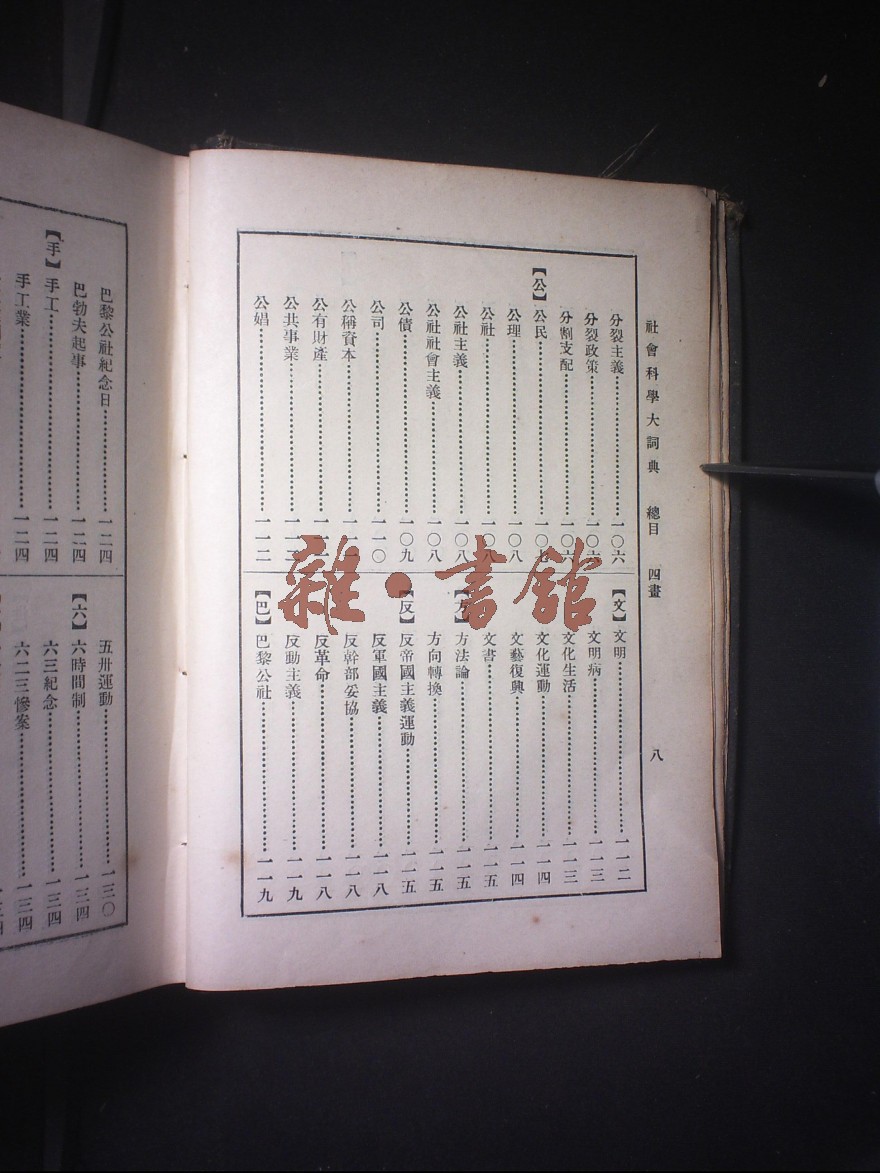 社會科學大詞典 總目 四畫 八
分裂主義 一〇六
分裂政策 一〇六
分割支配 一〇六
【公】公民 一〇七
公理 一〇八
公社 一〇八
公社主義 一〇八
公社社會主義 一〇八
公債 一〇九
公司 一一〇
公稱資本
公有財產
公共事業
公娼 一一二
【文】文明 一一二
文明病 一一三
文化生活 一一三
文化運動 一一四
文藝復興 一一四
文書 一一五
【方】方法論 一一五
方向轉換 一一五
【反】反帝國主義運動 一一五
反軍國主義 一一八
反幹部妥協 一一八
反革命 一一八
反動主義 一一九
【巴】巴黎公社 一一九
巴黎公社紀念日 一二四
巴勃夫起事 一二四
【手】手工 一二四
手工業 一二四
五卅運動 一三〇
【六】六時間制 一三四
六三紀念 一三四
六二三慘案 一三四
雜·書館